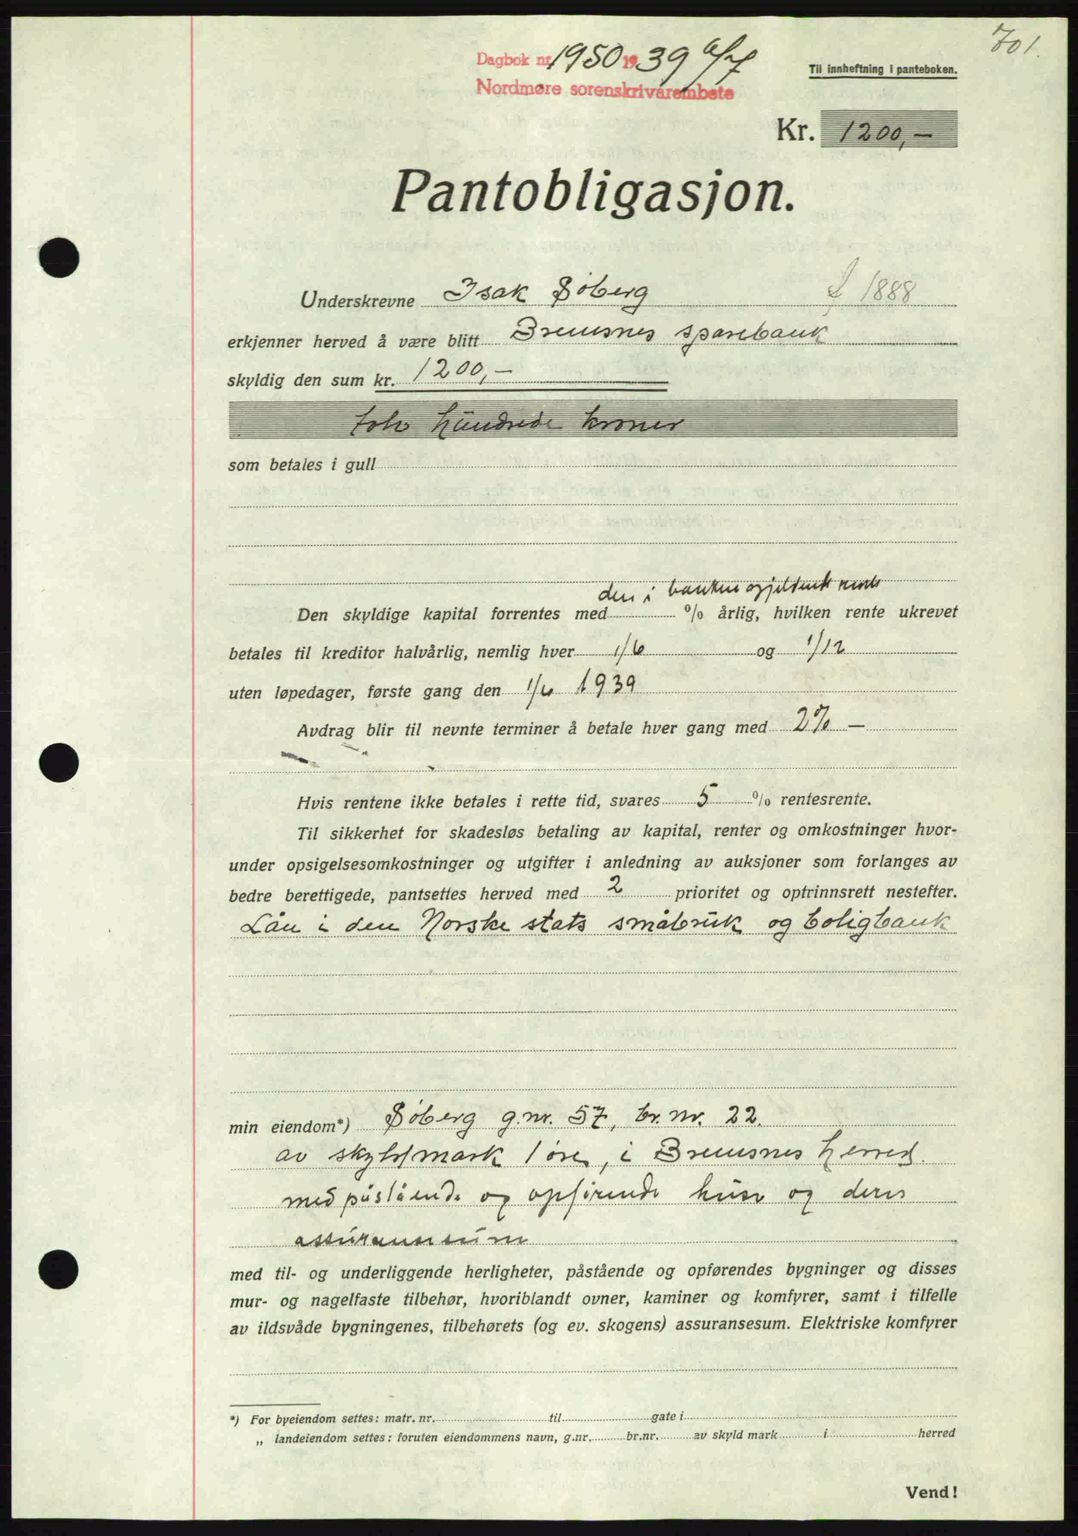 701.
Dagbok nr. 1950 1939 6/7
Nordmøre sorenskriverembete
Til innheftning i panteboken.
Kr. 1200,-
Pantobligasjon.
Underskrevne Isak Søberg f 1888
erkjenner herved å være blitt Bremsnes sparebank
skyldig den sum kr. 1200,-
tolv hundrede kroner
som betales i gull
den i banken gjeldende rente
Den skyldige kapital forrentes med % årlig, hvilken rente ukrevet
betales til kreditor halvårlig, nemlig hver 1/6 og 1/12
uten løpedager, første gang den 1/6 1939
Avdrag blir til nevnte terminer å betale hver gang med 2% -
Hvis rentene ikke betales i rette tid, svares 5 % rentesrente.
Til sikkerhet for skadesløs betaling av kapital, renter og omkostninger hvor-
under opsigelsesomkostninger og utgifter i anledning av auksjoner som forlanges av
bedre berettigede, pantsettes herved med 2 prioritet og optrinnsrett nestefter.
Lån i den Norske stats småbruk og boligbank
min eiendom*) Søberg g.nr. 57, br. nr. 22.
av skyld mark 1 øre, i Bremsnes herred.
med påstående og opførende huse og deres
assuransesum
med til- og underliggende herligheter, påstående og opførendes bygninger og disses
mur- og nagelfaste tilbehør, hvoriblandt ovner, kaminer og komfyrer, samt i tilfelle
av ildsvåde bygningenes, tilbehørets (og ev. skogens) assuransesum. Elektriske komfyrer
*) For byeiendom settes: matr. nr. til gate i
„ landeiendom settes: foruten eiendommens navn, g.nr. br.nr. av skyld mark i herred
Vend!